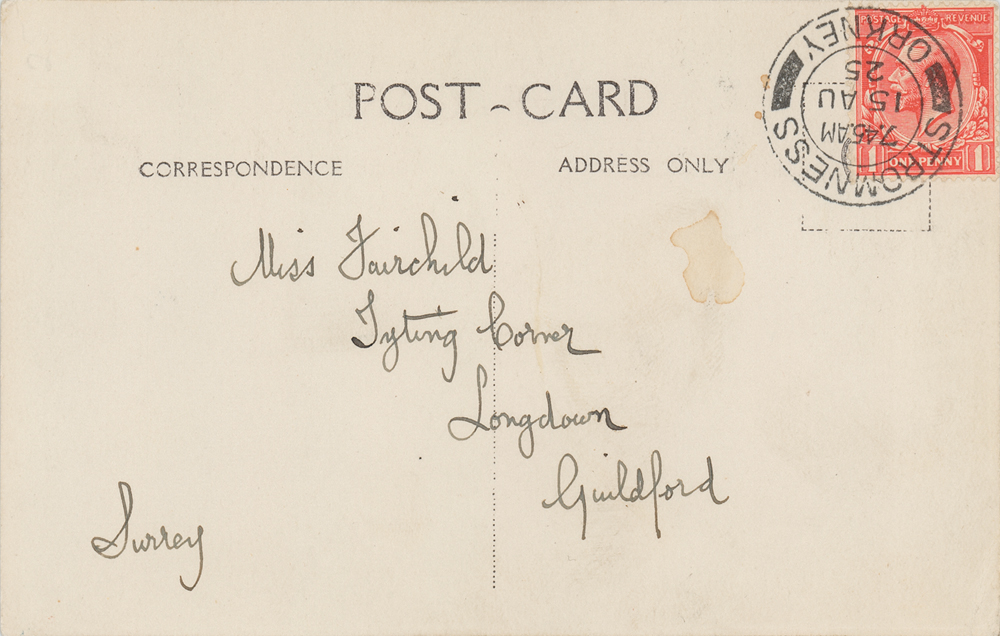 POST-CARD
CORRESPONDENCE
ADDRESS ONLY
POSTAGE REVENUE
ONE PENNY
1 1
STROMNESS
7.45AM
15 AU
25
ORKNEY
Miss Fairchild
Tyting Corner
Longdown
Guildford
Surrey